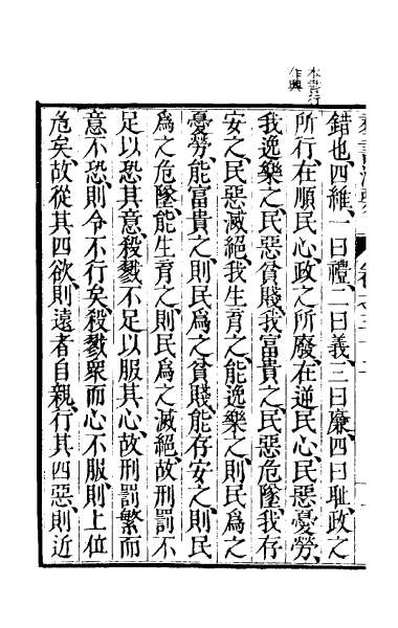 本書行
作興
羣書治要
錯也、四維、一曰禮、二曰義、三曰廉、四曰耻、政之
所行、在順民心、政之所廢、在逆民心、民惡憂勞、
我逸樂之、民惡貧賤、我富貴之、民惡危墜、我存
安之、民惡滅絕、我生育之、能逸樂之、則民爲之
憂勞、能富貴之、則民爲之貧賤、能存安之、則民
爲之危墜、能生育之、則民爲之滅絕、故刑罰不
足以恐其意、殺戮不足以服其心、故刑罰繁而
意不恐、則令不行矣、殺戮衆而心不服、則上位
危矣、故從其四欲、則遠者自親、行其四惡、則近